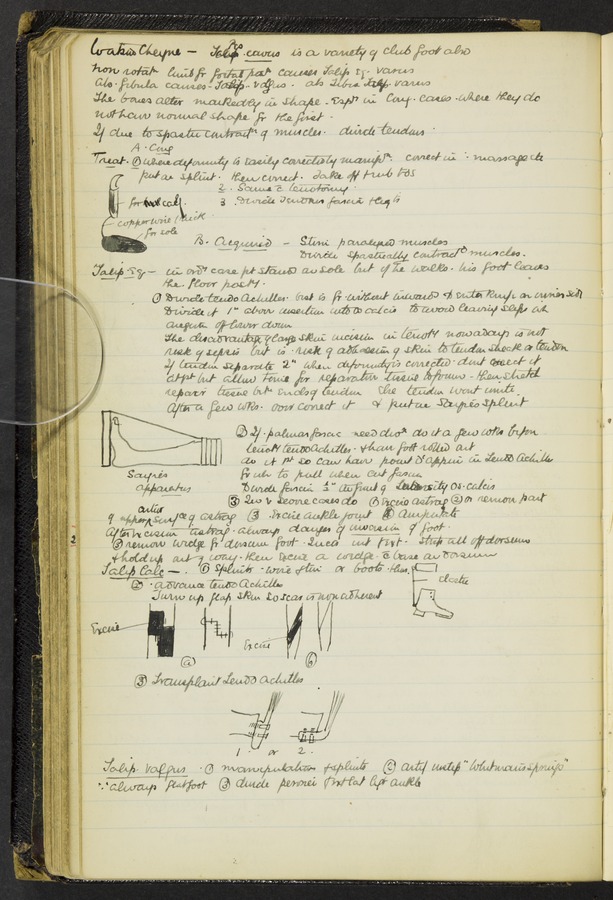 Watson Cheyne — Talip. Pes cavus is a variety of club foot also
non rotatn limb fr foetal postn causes Talip. Eq. varus
Abs. fibula causes Talip. valgus. abs Tibia Talip varus
The bones alter markedly in shape. Esply in Cong. cases where they do
not have normal shape fr the first.
If due to spastic contractn of muscles. divide tendons.
A. Cong
Treat. ① where deformity is easily correctible by manipn. correct it massage etc
put on splint. then correct. Take off & rub
2. Same c tenotomy
3 Divide tendons fascia & ligts
for calf
copper wire thick
for sole
B. Acquired — Stim paralysed muscles
Divide spastically contractd muscles.
Talip Eq — in ordy case pt stands on sole but if he walks. his foot leaves
the floor postly.
① Divide tendo Achilles. best is fr without inwards & enter knife on inner side
Divide it 1" above insertion into os calcis to avoid leaving slips wh
are given off lower down
The disadvantage of large skin incision in tenoty nowadays is not
risk of sepsis but is risk of adhesion of skin to tendon sheath or tendon
If tendon separate 2" when deformity is corrected dont correct it
at pt but allow time for reparative tissue to form. then stretch
repair tissue but ends of tendon Else tendon wont unite
After a few wks. over correct it & put on Sayre's splint
Sayre's
apparatus
② If palmar fascia need divn do it a few wks before
tenoty tendo Achilles & have foot rolled out
do it 1st so can have point d'appui in Tendo Achilles
fr wh to pull when cut fascia
Divide fascia ½" in front of tuberosity os calcis
③ In v. severe cases do ① Excise astrag ② or remove part
of upper surf of astrag ③ Excise ankle joint ④ Amputate
After excision astrag. always danger of inversion of foot.
⑤ remove wedge fr dorsum foot. Incis int first. Strip all off dorsum
& hold up out of way. then excise a wedge c base on dorsum
Talip Calc — . ① Splints. wire & tin or boots thus
elastic
② advance tendo Achilles
Turn up flap skin so scar is non adherent
Excise
Excise
a
b
③ Transplant Tendo Achilles
1. or 2.
Talip. Valgus. ① manipulation & splints ② artif instep "Whitman's springs"
∵ always flat foot ③ divide peronei & ext lat ligt ankle
2